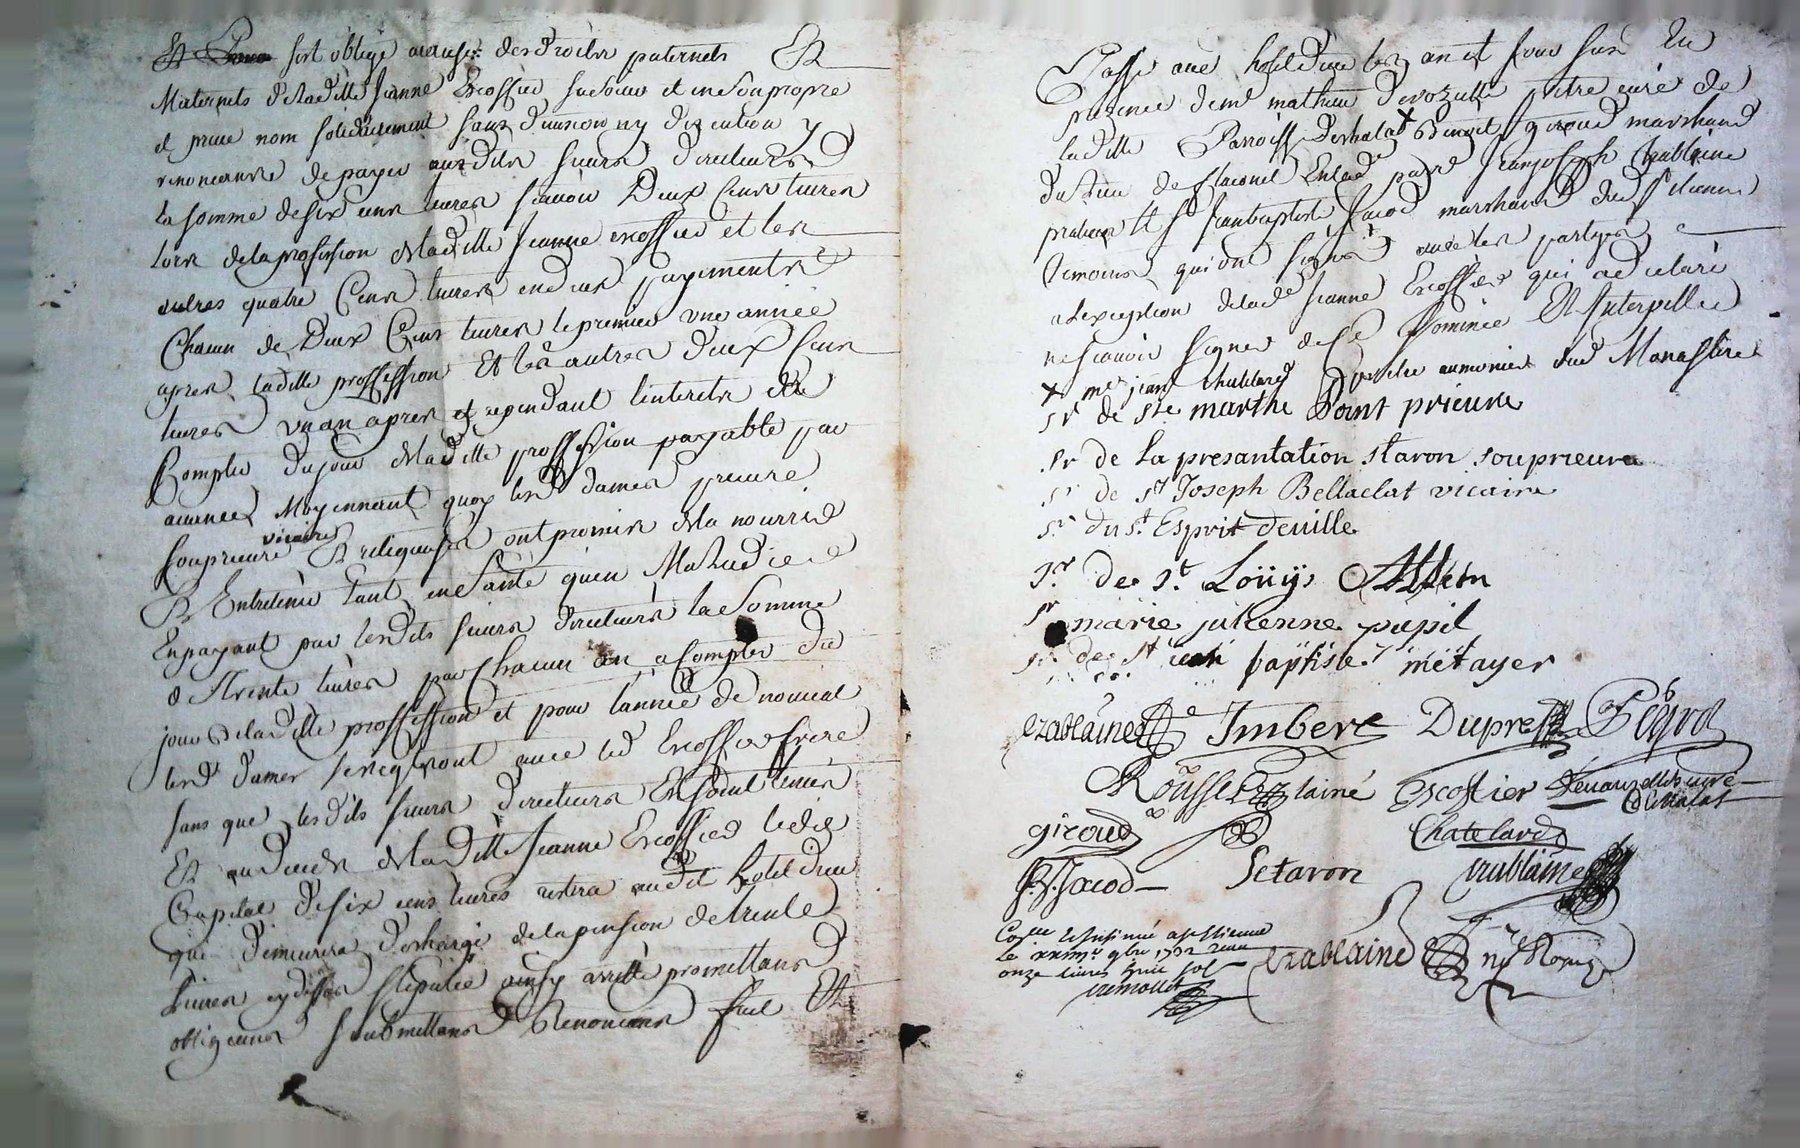 sest obligé a cause des droits paternels Et
Maternels de laditte Jeanne Escoffier sa soeur et en son propre
et privé nom solidairement sans division ny discution
renonceants de payer auxdits sieurs directeurs
la somme de six cens livres scavoir Deux Cens livres
lors de la proffession de laditte Jeanne escoffier et les
autres quatre Cens livres en deux payements
Chacun de Deux Cens livres le premier une année
apres laditte proffession Et les autres deux Cens
livres un an apres et cependant linterets
Compter du jour de laditte proffession payable par
avance Moyennant quoy lesd dames prieure
souprieure vicaire Et religieuses ont promis de la nourrir
Et Entretenir tant en Santé quen Maladie
En payant par lesdits sieurs directeurs la Somme
de Trente livres par Chacun an a Compter du
jour de laditte proffession et pour l'année de noviciat
lesd dames avec led Escoffier frere
sans que lesdits sieurs directeurs En soient tenus
Et au deceds de laditte Jeanne Escoffier ledit
Capital de six cens livres restera audit hotel Dieu
qui demeurera deschargé de la pension de trente
livres cy dessus stipulée ainsy arreté promettans
obligeans soubmettans Renoncans fait Et
Passé aud hotel Dieu les an et jour susd En
presence de me mathieu prtre curé de
laditte Parroisse Benoit giroud marchand
du lieu de Enlad parr Jean joseph trablaine
praticien Et Sr Jean baptiste Jacod marchand dud st etienne
temoins qui ont signé avec les partyes
a lexception de lade Jeanne Escoffier qui a declaré
ne scavoir signer de ce Sommée Et Interpellée
x me jean Chatelard prestre aumonier dud Monastere
sr de ste marthe Point prieure
sr de La presantation staron souprieure
sr de st Joseph Bellaclat vicaire
sr du st Esprit deuille
sr de st Loüys Allein
sr marie julienne pupil
sr de st jean baptiste metayer
ezablaine Imbert Dupre Peyrot
Rousset laîné escoffier curé
giroud Chatelard
J. B. Jacod Staron trablaine
Coll et insinué a st Etienne
Le 9bre 1702 Receu
onze livres huit sols
trablaine